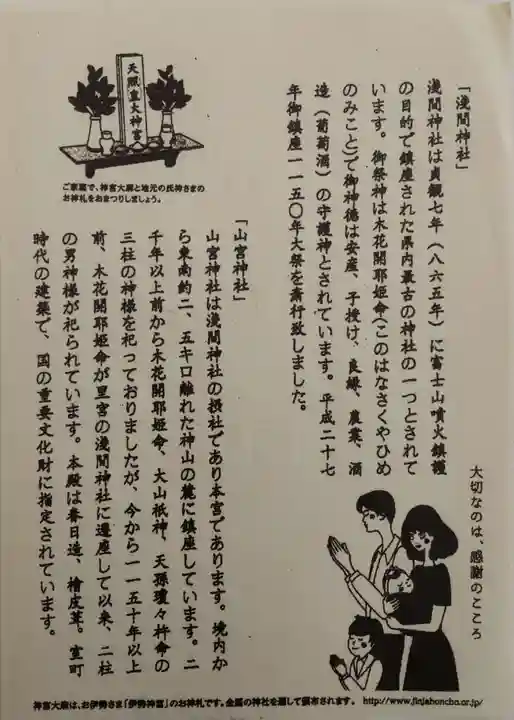 「浅間神社」
浅間神社は貞観七年（八六五年）に富士山噴火鎮護
の目的で鎮座された県内最古の神社の一つとされて
います。御祭神は木花開耶姫命(このはなさくやひめ
のみこと)で御神徳は安産、子授け、良縁、農業、酒
造（葡萄酒）の守護神とされています。平成二十七
年御鎮座一一五〇年大祭を斎行致しました。
天照皇大神宮
ご家庭で、神宮大麻と地元の氏神さまの
お神札をおまつりしましょう。
「山宮神社」
山宮神社は浅間神社の摂社であり本宮であります。境内か
ら東南約二、五キロ離れた神山の麓に鎮座しています。二
千年以上前から木花開耶姫命、大山祇神、天孫瓊々杵命の
三柱の神様を祀っておりましたが、今から一一五十年以上
前、木花開耶姫命が里宮の浅間神社に遷座して以来、二柱
の男神様が祀られています。本殿は春日造、檜皮葺。室町
時代の建築で、国の重要文化財に指定されています。
大切なのは、感謝のこころ
神宮大麻は、お伊勢さま「伊勢神宮」のお神札です。全国の神社を通して頒布されます。 http://www.jinjahoncho.or.jp/